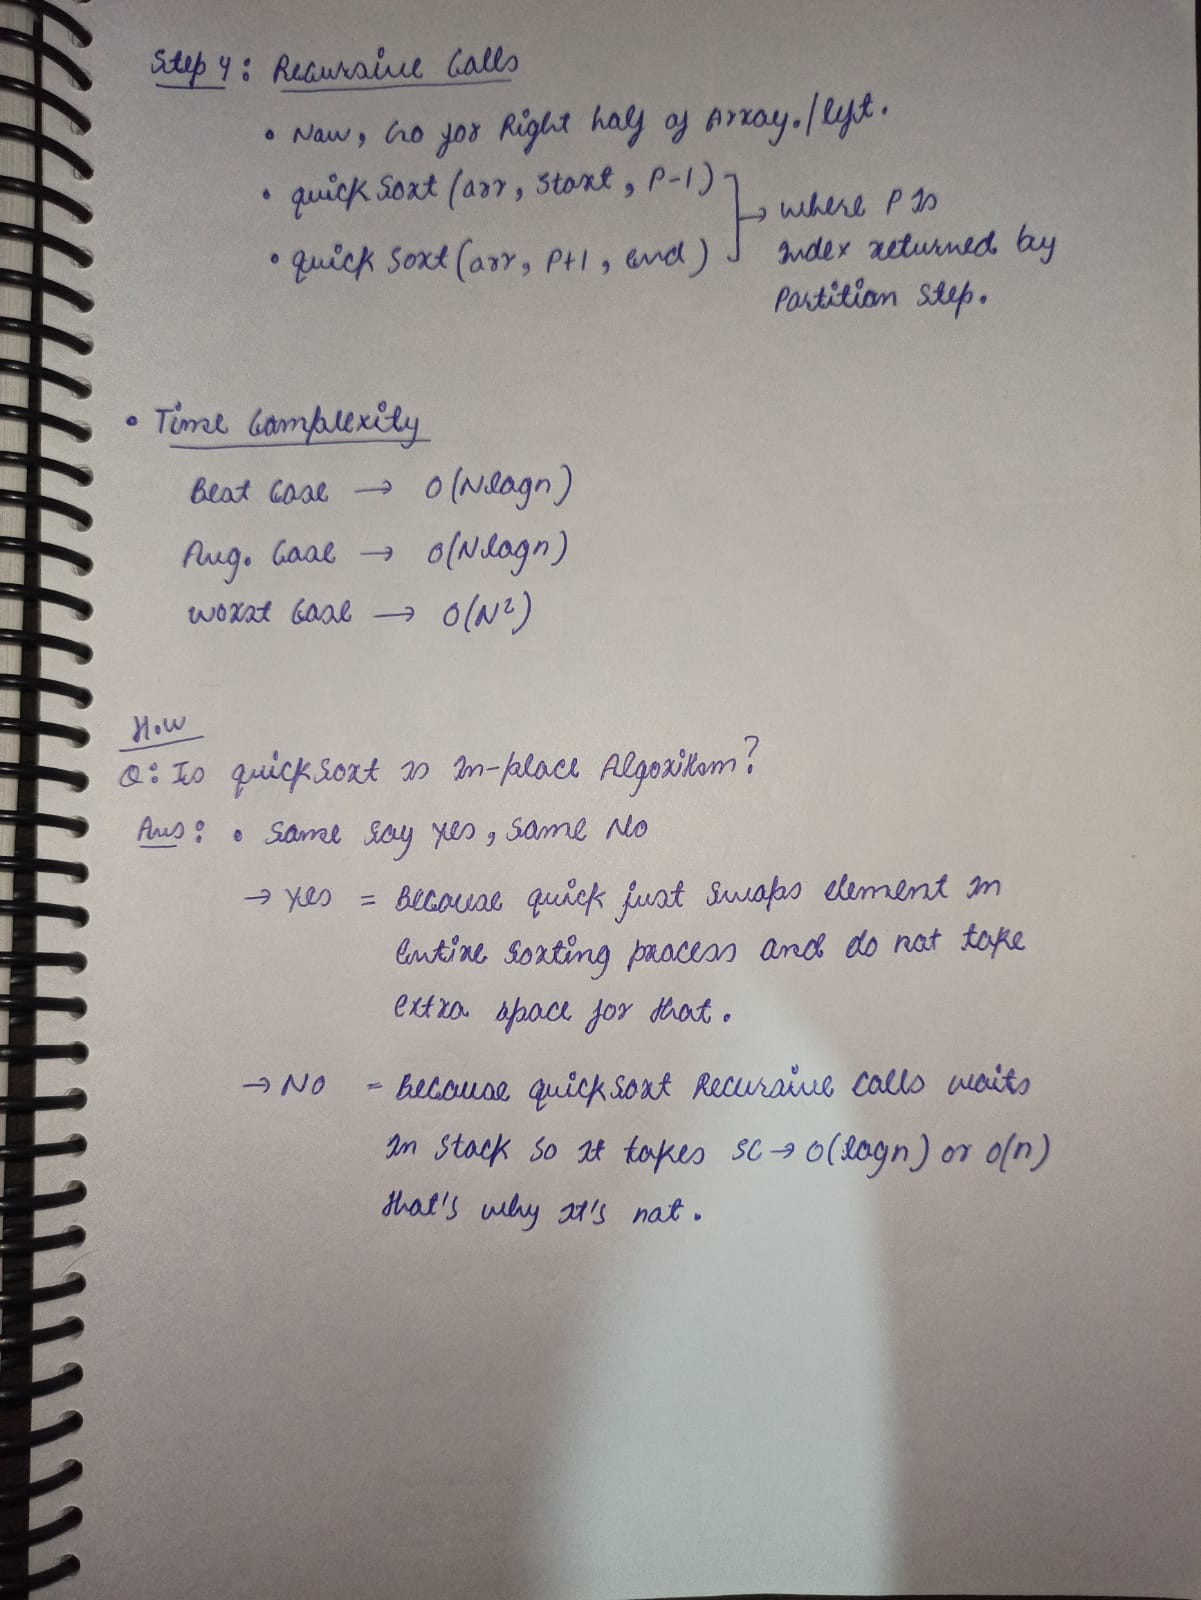 Step 4: Recursive Calls
• Now, Go for Right half of Array./left.
• quick Sort (arr, Start, P-1)
• quick Sort (arr, P+1, end)
→ where P is
index returned by
Partition Step.
• Time Complexity
Best Case → O(Nlogn)
Avg. Case → O(Nlogn)
worst Case → O(N²)
How
Q: Is quick Sort is In-place Algorithm?
Ans: • Some Say yes, Some No
→ Yes = Because quick just Swaps element in
Entire Sorting process and do not take
extra space for that.
→ No = Because quick Sort Recursive calls waits
in Stack So it takes SC → O(logn) or O(n)
that's why it's not.